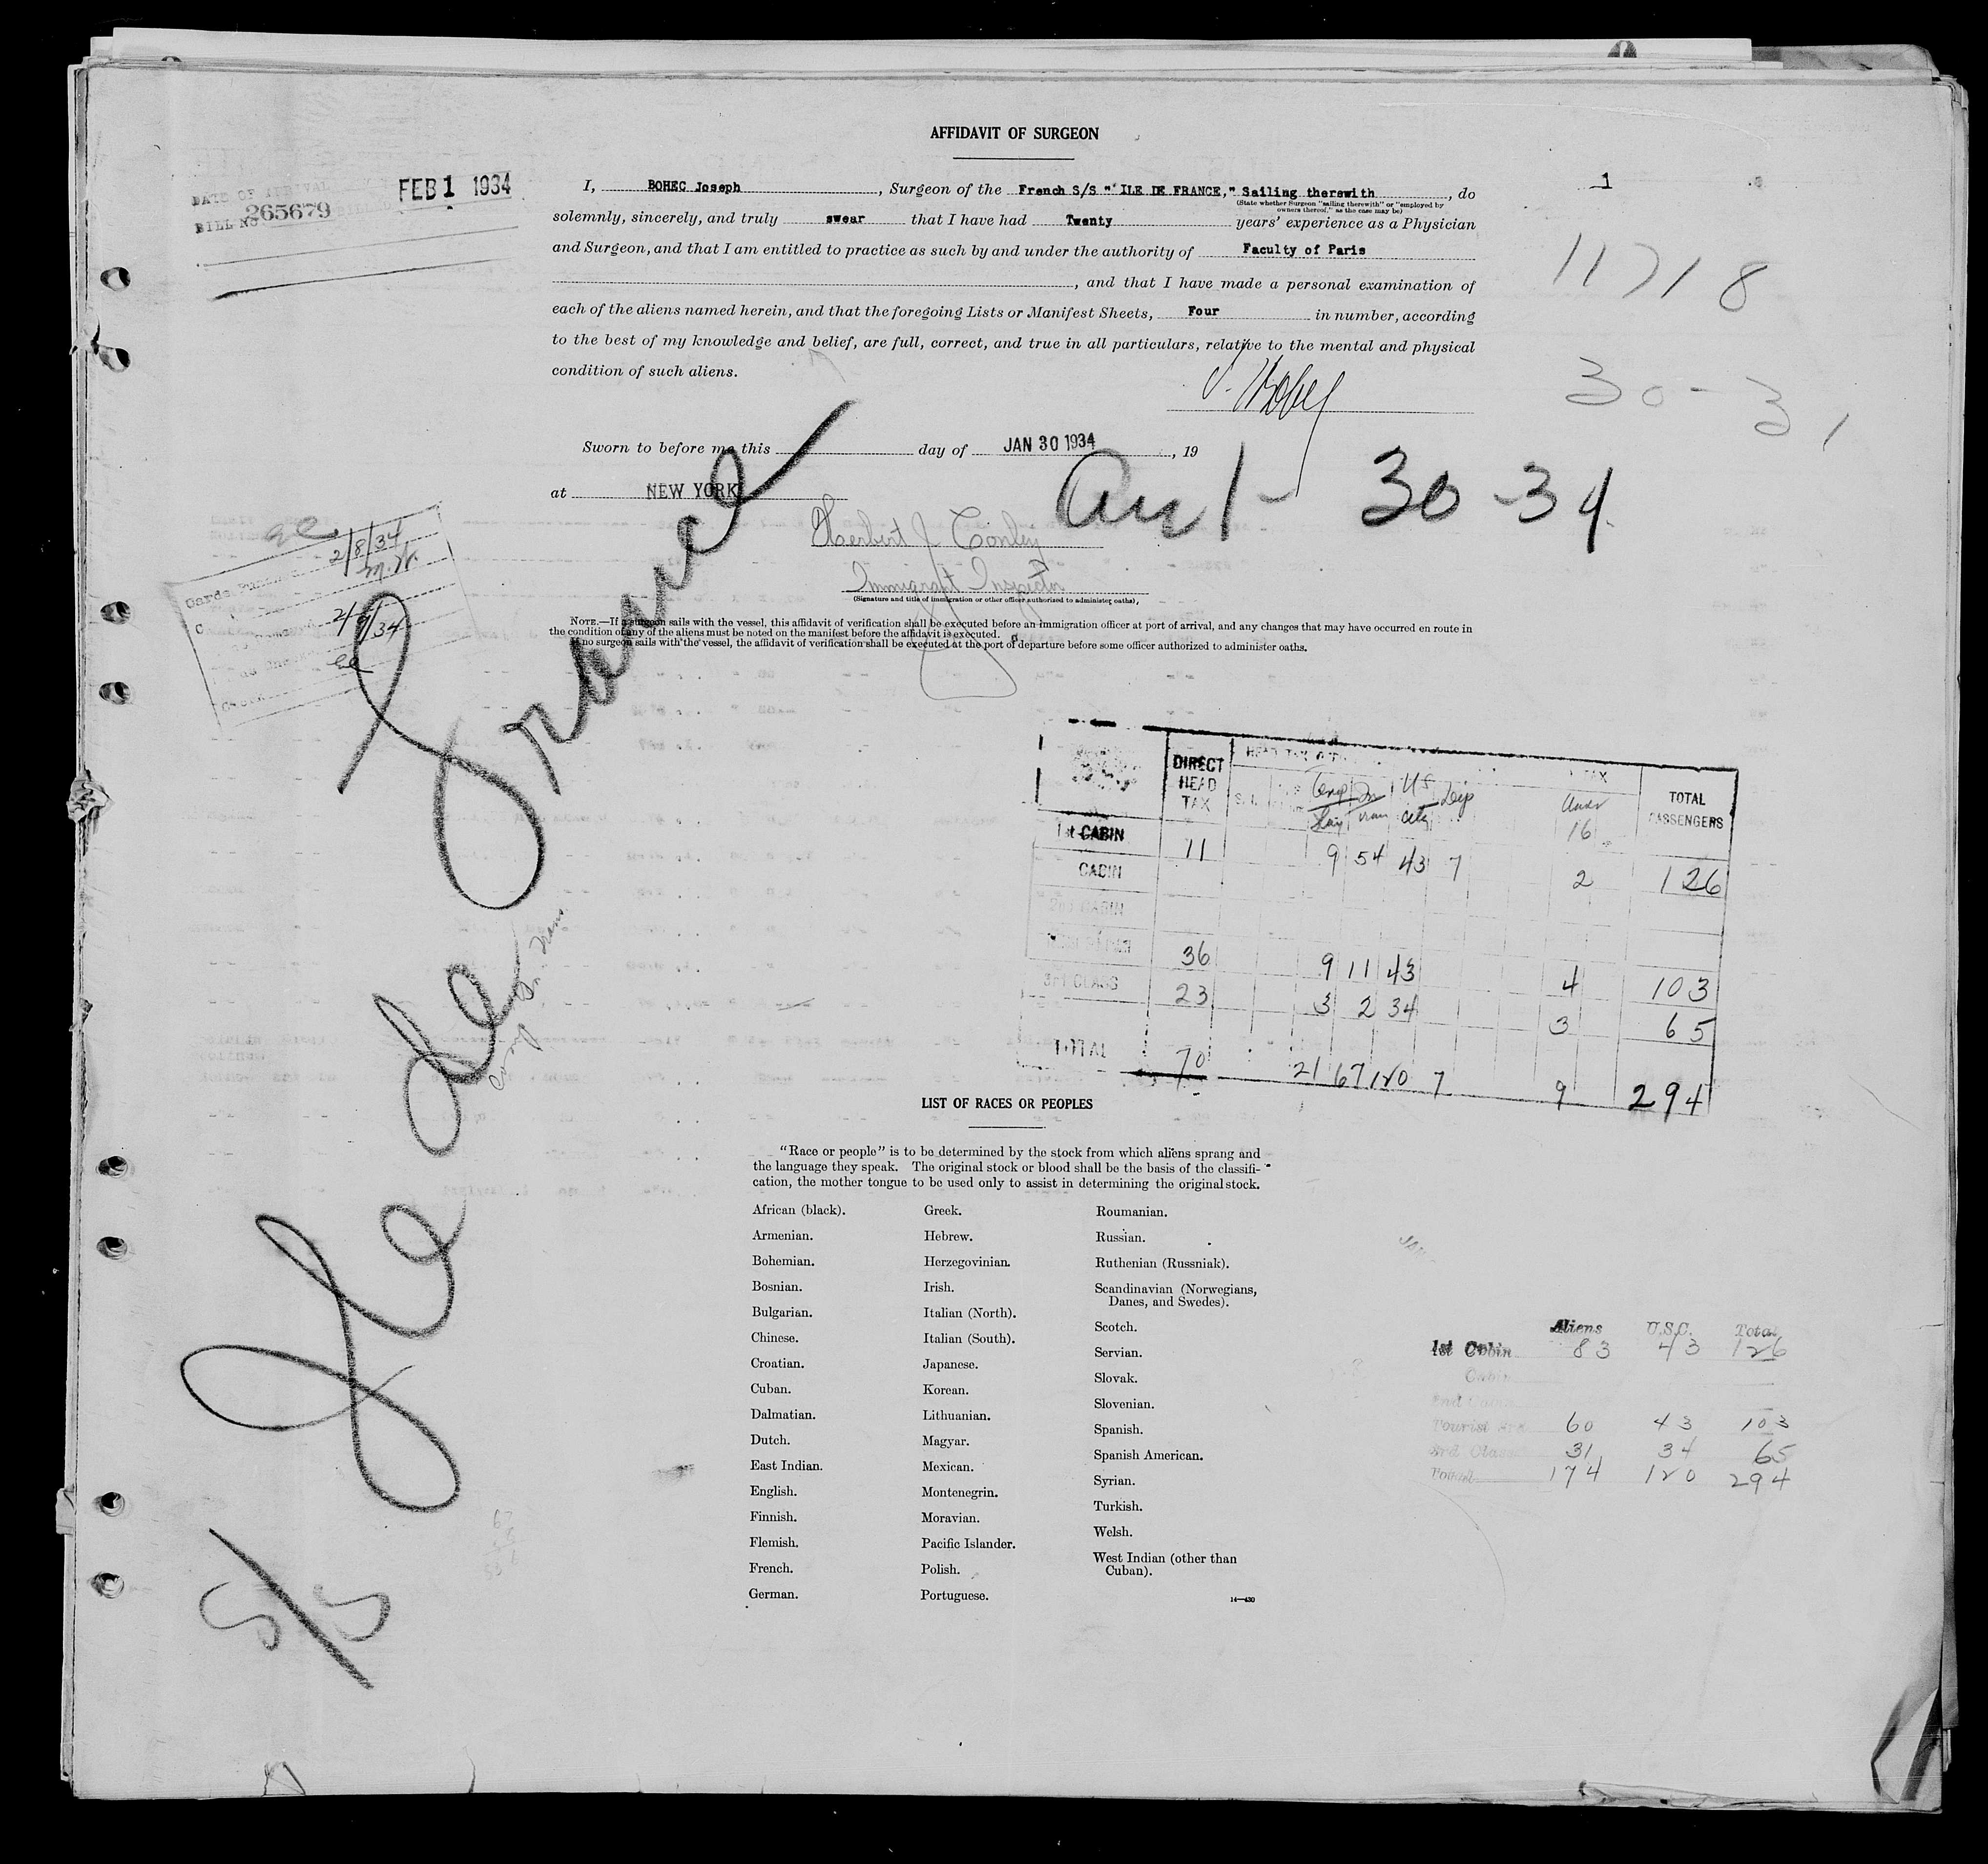 AFFIDAVIT OF SURGEON
DATE OF ARRIVAL
FEB 1 1934
BILL NO 265679
1
I, BOHEC Joseph, Surgeon of the French S/S "ILE DE FRANCE," Sailing therewith, do
(State whether Surgeon "sailing therewith" or "employed by
owners thereof," as the case may be)
solemnly, sincerely, and truly swear that I have had Twenty years' experience as a Physician
and Surgeon, and that I am entitled to practice as such by and under the authority of Faculty of Paris
, and that I have made a personal examination of
each of the aliens named herein, and that the foregoing Lists or Manifest Sheets, Four in number, according
to the best of my knowledge and belief, are full, correct, and true in all particulars, relative to the mental and physical
condition of such aliens.
11718
30-31
Sworn to before me this day of JAN 30 1934, 19
at NEW YORK
Arr 1-30-34
Herbert J Conley
Immigrant Inspector
(Signature and title of immigration or other officer authorized to administer oaths),
NOTE.—If a surgeon sails with the vessel, this affidavit of verification shall be executed before an immigration officer at port of arrival, and any changes that may have occurred en route in
the condition of any of the aliens must be noted on the manifest before the affidavit is executed.
If no surgeon sails with the vessel, the affidavit of verification shall be executed at the port of departure before some officer authorized to administer oaths.
2/8/34
S/S Ile de France
DIRECT HEAD TAX
Under 16
TOTAL PASSENGERS
1st CABIN 11 9 54 43 7 2 126
CABIN
2nd CABIN
36 9 11 43 4 103
3rd CLASS 23 3 2 34 3 65
TOTAL 70 21 67 120 7 9 294
LIST OF RACES OR PEOPLES
"Race or people" is to be determined by the stock from which aliens sprang and
the language they speak. The original stock or blood shall be the basis of the classifi-
cation, the mother tongue to be used only to assist in determining the original stock.
African (black).
Armenian.
Bohemian.
Bosnian.
Bulgarian.
Chinese.
Croatian.
Cuban.
Dalmatian.
Dutch.
East Indian.
English.
Finnish.
Flemish.
French.
German.
Greek.
Hebrew.
Herzegovinian.
Irish.
Italian (North).
Italian (South).
Japanese.
Korean.
Lithuanian.
Magyar.
Mexican.
Montenegrin.
Moravian.
Pacific Islander.
Polish.
Portuguese.
Roumanian.
Russian.
Ruthenian (Russniak).
Scandinavian (Norwegians,
Danes, and Swedes).
Scotch.
Servian.
Slovak.
Slovenian.
Spanish.
Spanish American.
Syrian.
Turkish.
Welsh.
West Indian (other than
Cuban).
14—430
Aliens U.S.C. Total
1st Cabin 83 43 126
Cabin
2nd Cabin
Tourist 60 43 103
3rd Class 31 34 65
Total 174 120 294